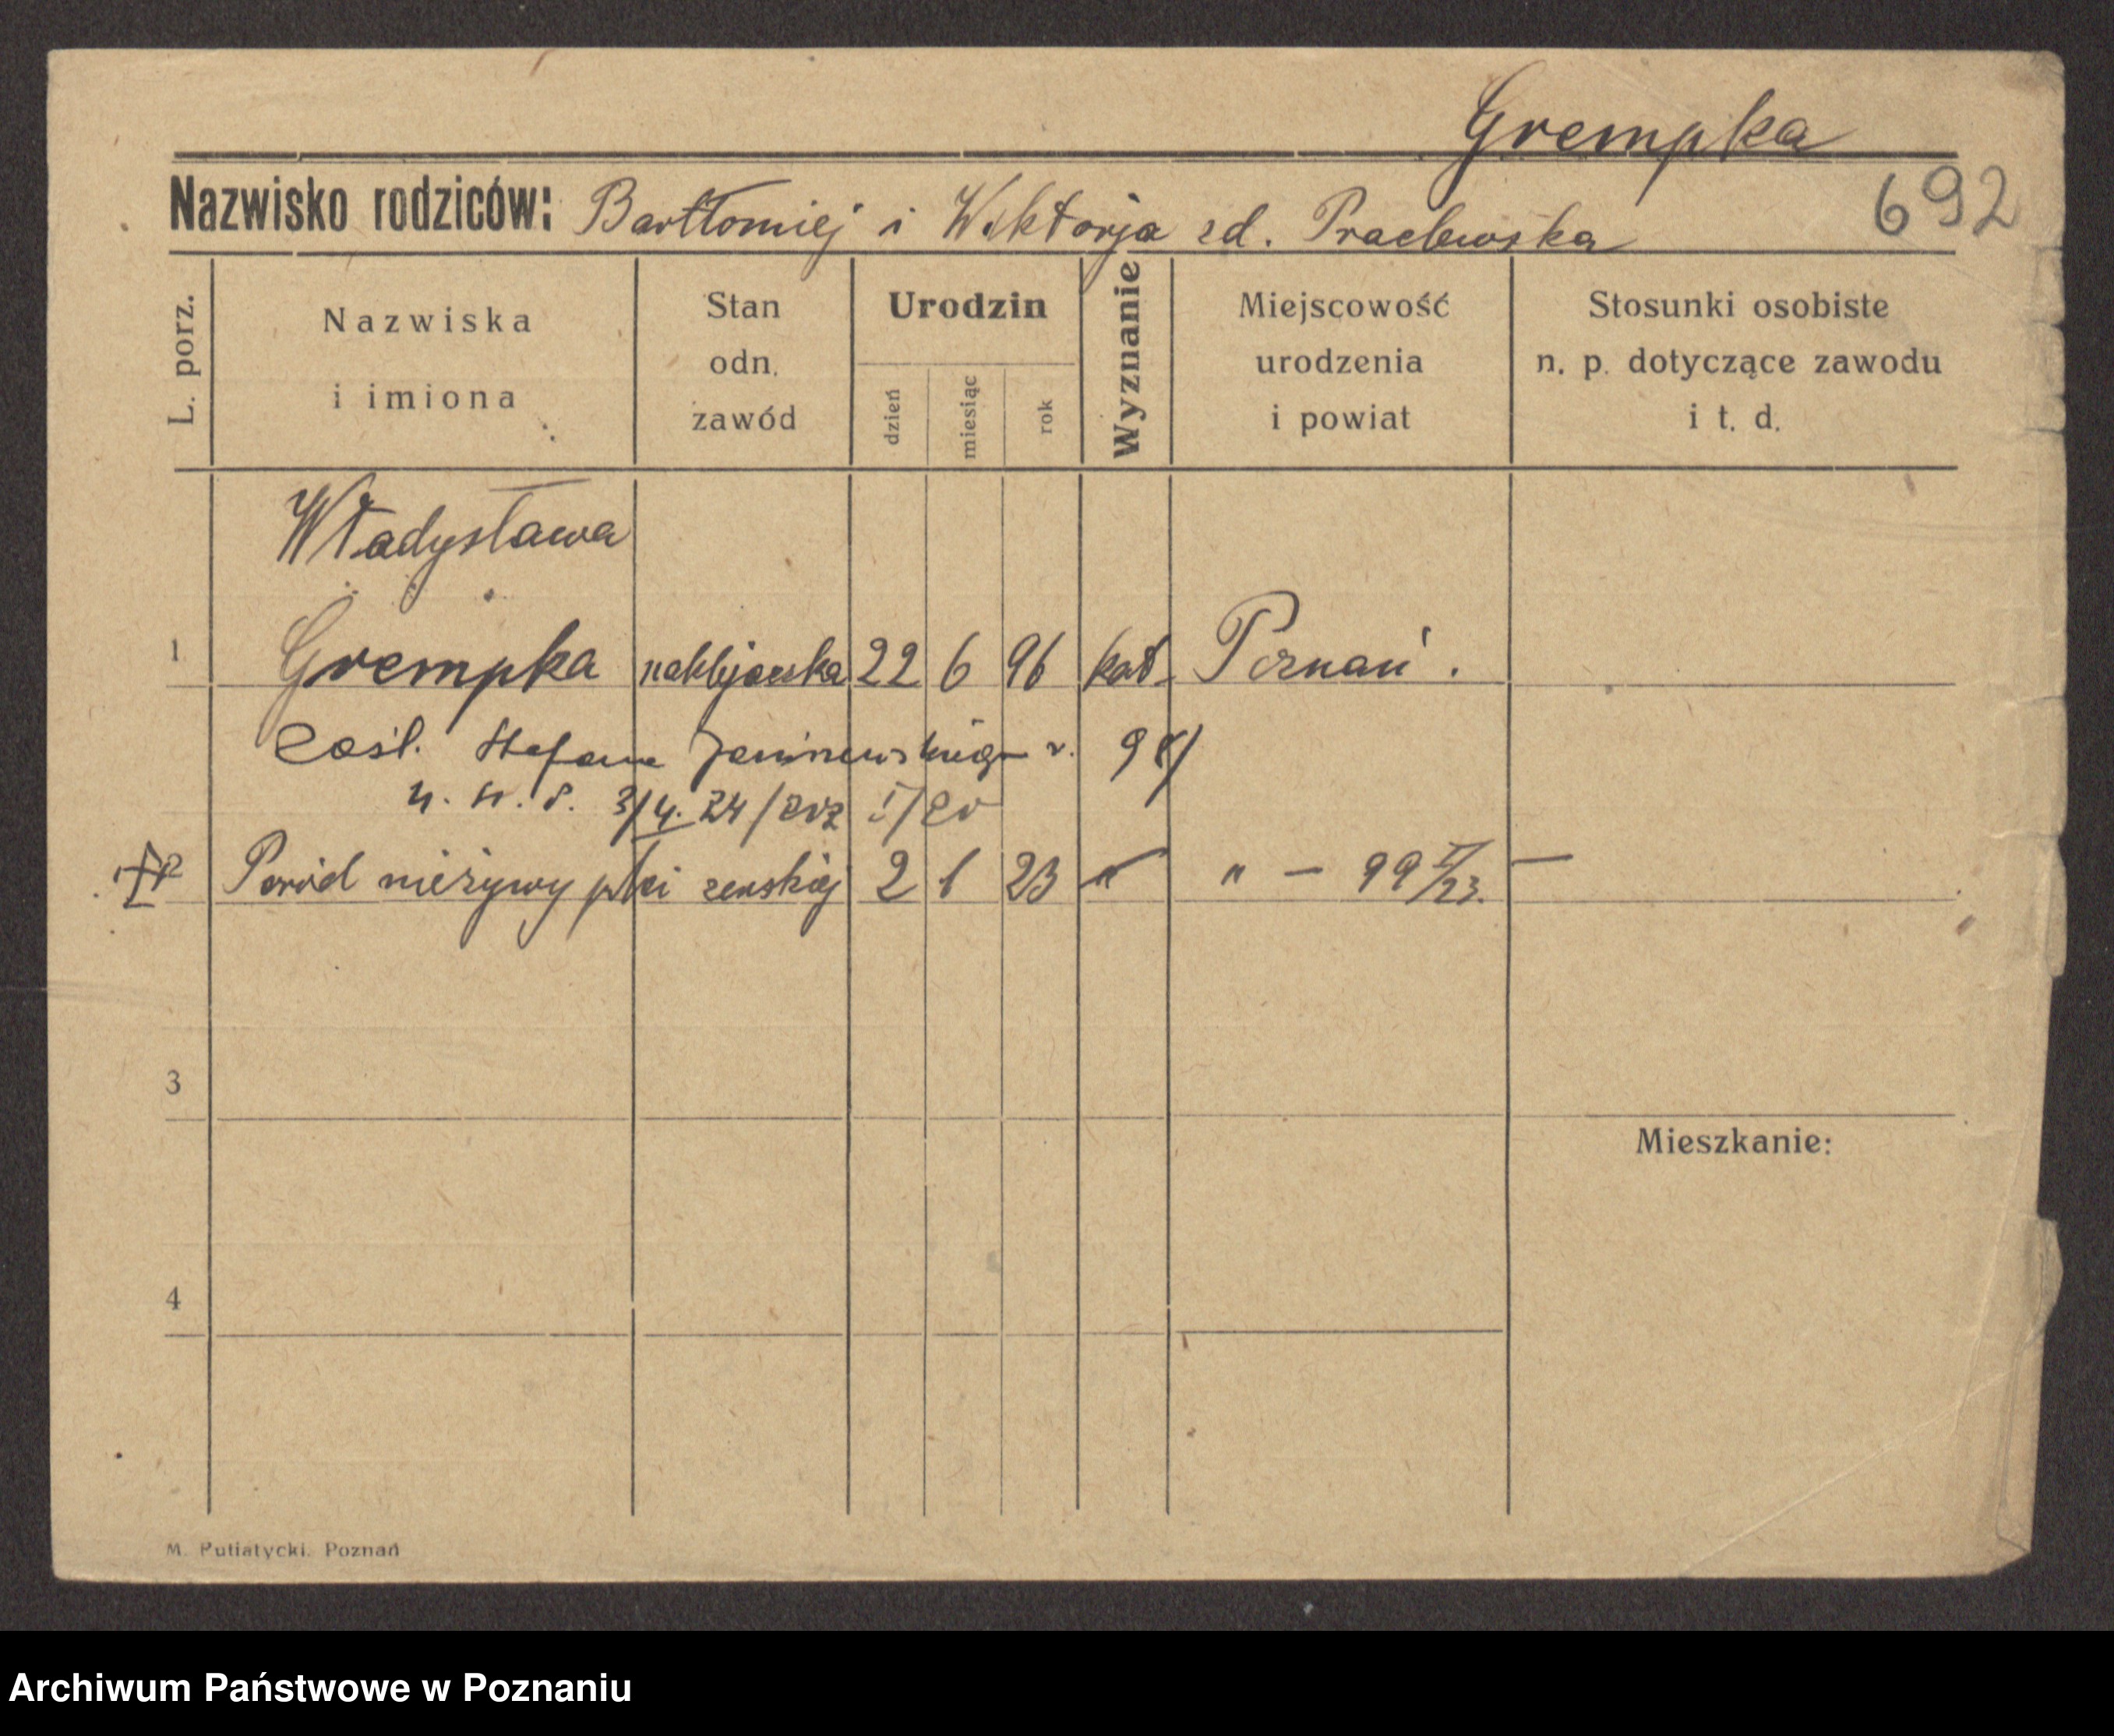 Grempka
692
Nazwisko rodziców: Bartłomiej i Wiktorja zd.
L. porz.
Nazwiska i imiona
Stan odn. zawód
Urodzin
dzień
miesiąc
rok
Wyznanie
Miejscowość urodzenia i powiat
Stosunki osobiste n. p. dotyczące zawodu i t. d.
Władysława
1 Grempka 22 6 96 kat. Poznań.
Zaśl. Stefana r. 98/
3/4. 24
Poród nieżywy płci żenskiej 2 1 23 " " – 99 I/23. –
3
Mieszkanie:
4
M. Putiatycki. Poznań
Archiwum Państwowe w Poznaniu